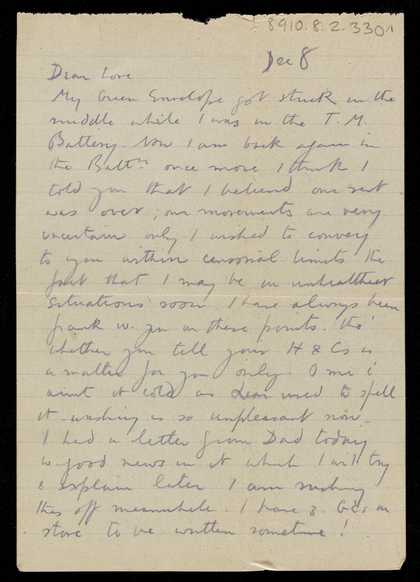 8910.8.2.330
Dec 8
Dear Love
My Green Envelope got stuck in the
middle while I was in the T. M.
Battery. Now I am back again in
the Battn once more I think I
told you that I believed our rest
was over; our movements are very
uncertain only I wished to convey
to you within censorial limits the
fact that I may be in unhealthier
situations soon. I have always been
frank w. you on these points. tho'
whether you tell your H & Cs is
a matter for you only. O me i
aint it cold as Dear used to spell
it - washing is so unpleasant now.
I had a letter from Dad today
w. good news in it which I will try
& explain later I am rushing
this off meanwhile. I have 3 G.Es in
store to be written sometime!